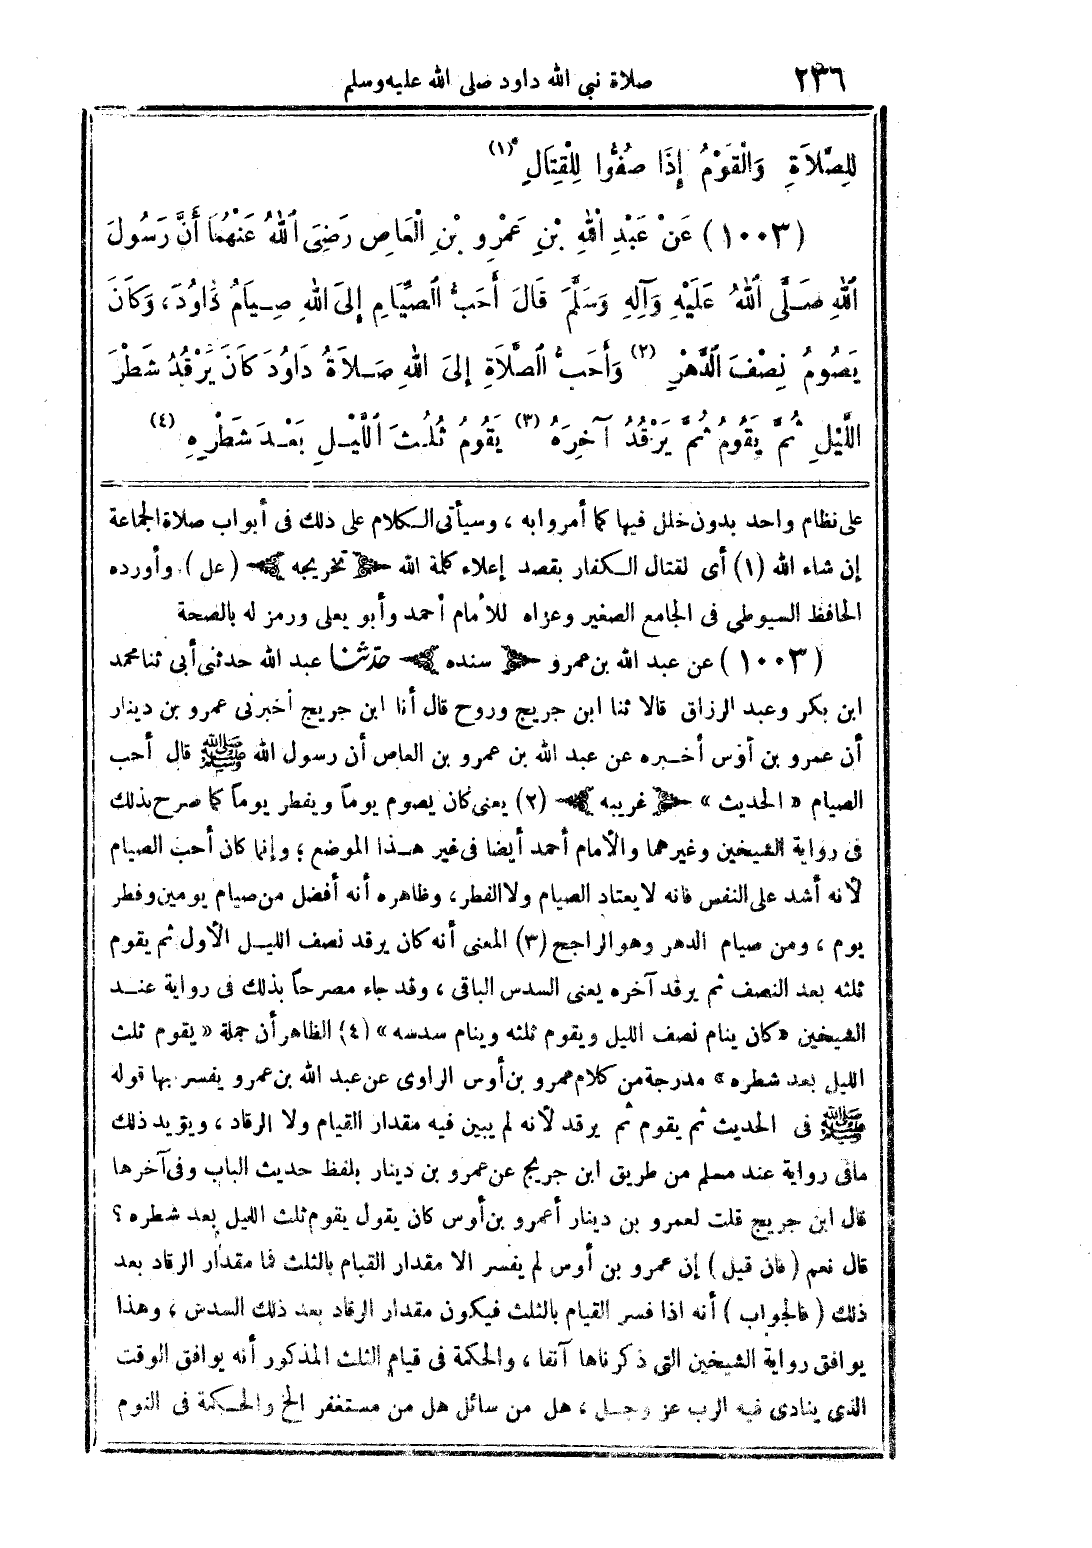 ٢٣٦ صلاة نبي الله داود صلى الله عليه وسلم
لِلصَّلاَةِ وَالْقَوْمُ إِذَا صُفُّوا لِلْقِتَالِ (١)
(١٠٠٣) عَنْ عَبْدِ اللهِ بْنِ عَمْرِو بْنِ الْعَاصِ رَضِىَ اللهُ عَنْهُمَا أَنَّ رَسُولَ
اللهِ صَلَّى اللهُ عَلَيْهِ وَآلِهِ وَسَلَّمَ قَالَ أَحَبُّ الصِّيَامِ إِلىَ اللهِ صِيَامُ دَاوُدَ، وَكَانَ
يَصُومُ نِصْفَ الدَّهْرِ (٢) وَأَحَبُّ الصَّلاَةِ إِلىَ اللهِ صَلاَةُ دَاوُدَ كَانَ يَرْقُدُ شَطْرَ
اللَّيْلِ ثُمَّ يَقُومُ ثُمَّ يَرْقُدُ آخِرَهُ (٣) يَقُومُ ثُلُثَ اللَّيْلِ بَعْدَ شَطْرِهِ (٤)
على نظام واحد بدون خلل فيها كما أمروا به ، وسيأتى الكلام على ذلك فى أبواب صلاة الجماعة
إن شاء الله (١) أى لقتال الكفار بقصد إعلاء كلمة الله ﴿ تخريجه ﴾ (عل) . وأورده
الحافظ السيوطي فى الجامع الصغير وعزاه للأمام أحمد وأبو يعلى ورمز له بالصحة
(١٠٠٣) عن عبد الله بن عمرو ﴿ سنده ﴾ حدثنا عبد الله حدثنى أبى ثنا محمد
ابن بكر وعبد الرزاق قالا ثنا ابن جريج وروح قال أنا ابن جريج أخبرنى عمرو بن دينار
أن عمرو بن أوس أخبره عن عبد الله بن عمرو بن العاص أن رسول الله ﷺ قال أحب
الصيام « الحديث » ﴿ غريبه ﴾ (٢) يعنى كان يصوم يوماً ويفطر يوماً كما صرح بذلك
فى رواية الشيخين وغيرهما والأمام أحمد أيضا فى غير هذا الموضع ؛ وإنما كان أحب الصيام
لأنه أشد على النفس فانه لا يعتاد الصيام ولا الفطر ، وظاهره أنه أفضل من صيام يومين وفطر
يوم ، ومن صيام الدهر وهو الراجح (٣) المعنى أنه كان يرقد نصف الليل الأول ثم يقوم
ثلثه بعد النصف ثم يرقد آخره يعنى السدس الباقى ، وقد جاء مصرحاً بذلك فى رواية عند
الشيخين «كان ينام نصف الليل ويقوم ثلثه وينام سدسه» (٤) الظاهر أن جملة « يقوم ثلث
الليل بعد شطره » مدرجة من كلام عمرو بن أوس الراوى عن عبد الله بن عمرو يفسر بها قوله
ﷺ فى الحديث ثم يقوم ثم يرقد لأنه لم يبين فيه مقدار القيام ولا الرقاد ، ويؤيد ذلك
مافى رواية عند مسلم من طريق ابن جريج عن عمرو بن دينار بلفظ حديث الباب وفى آخرها
قال ابن جريج قلت لعمرو بن دينار أعمرو بن أوس كان يقول يقوم ثلث الليل بعد شطره ؟
قال نعم (فان قيل) إن عمرو بن أوس لم يفسر الا مقدار القيام بالثلث فما مقدار الرقاد بعد
ذلك (فالجواب) أنه اذا فسر القيام بالثلث فيكون مقدار الرقاد بعد ذلك السدس ، وهذا
يوافق رواية الشيخين التى ذكرناها آنفا ، والحكمة فى قيام الثلث المذكور أنه يوافق الوقت
الذى ينادى فيه الرب عز وجل ، هل من سائل هل من مستغفر الخ والحكمة فى النوم